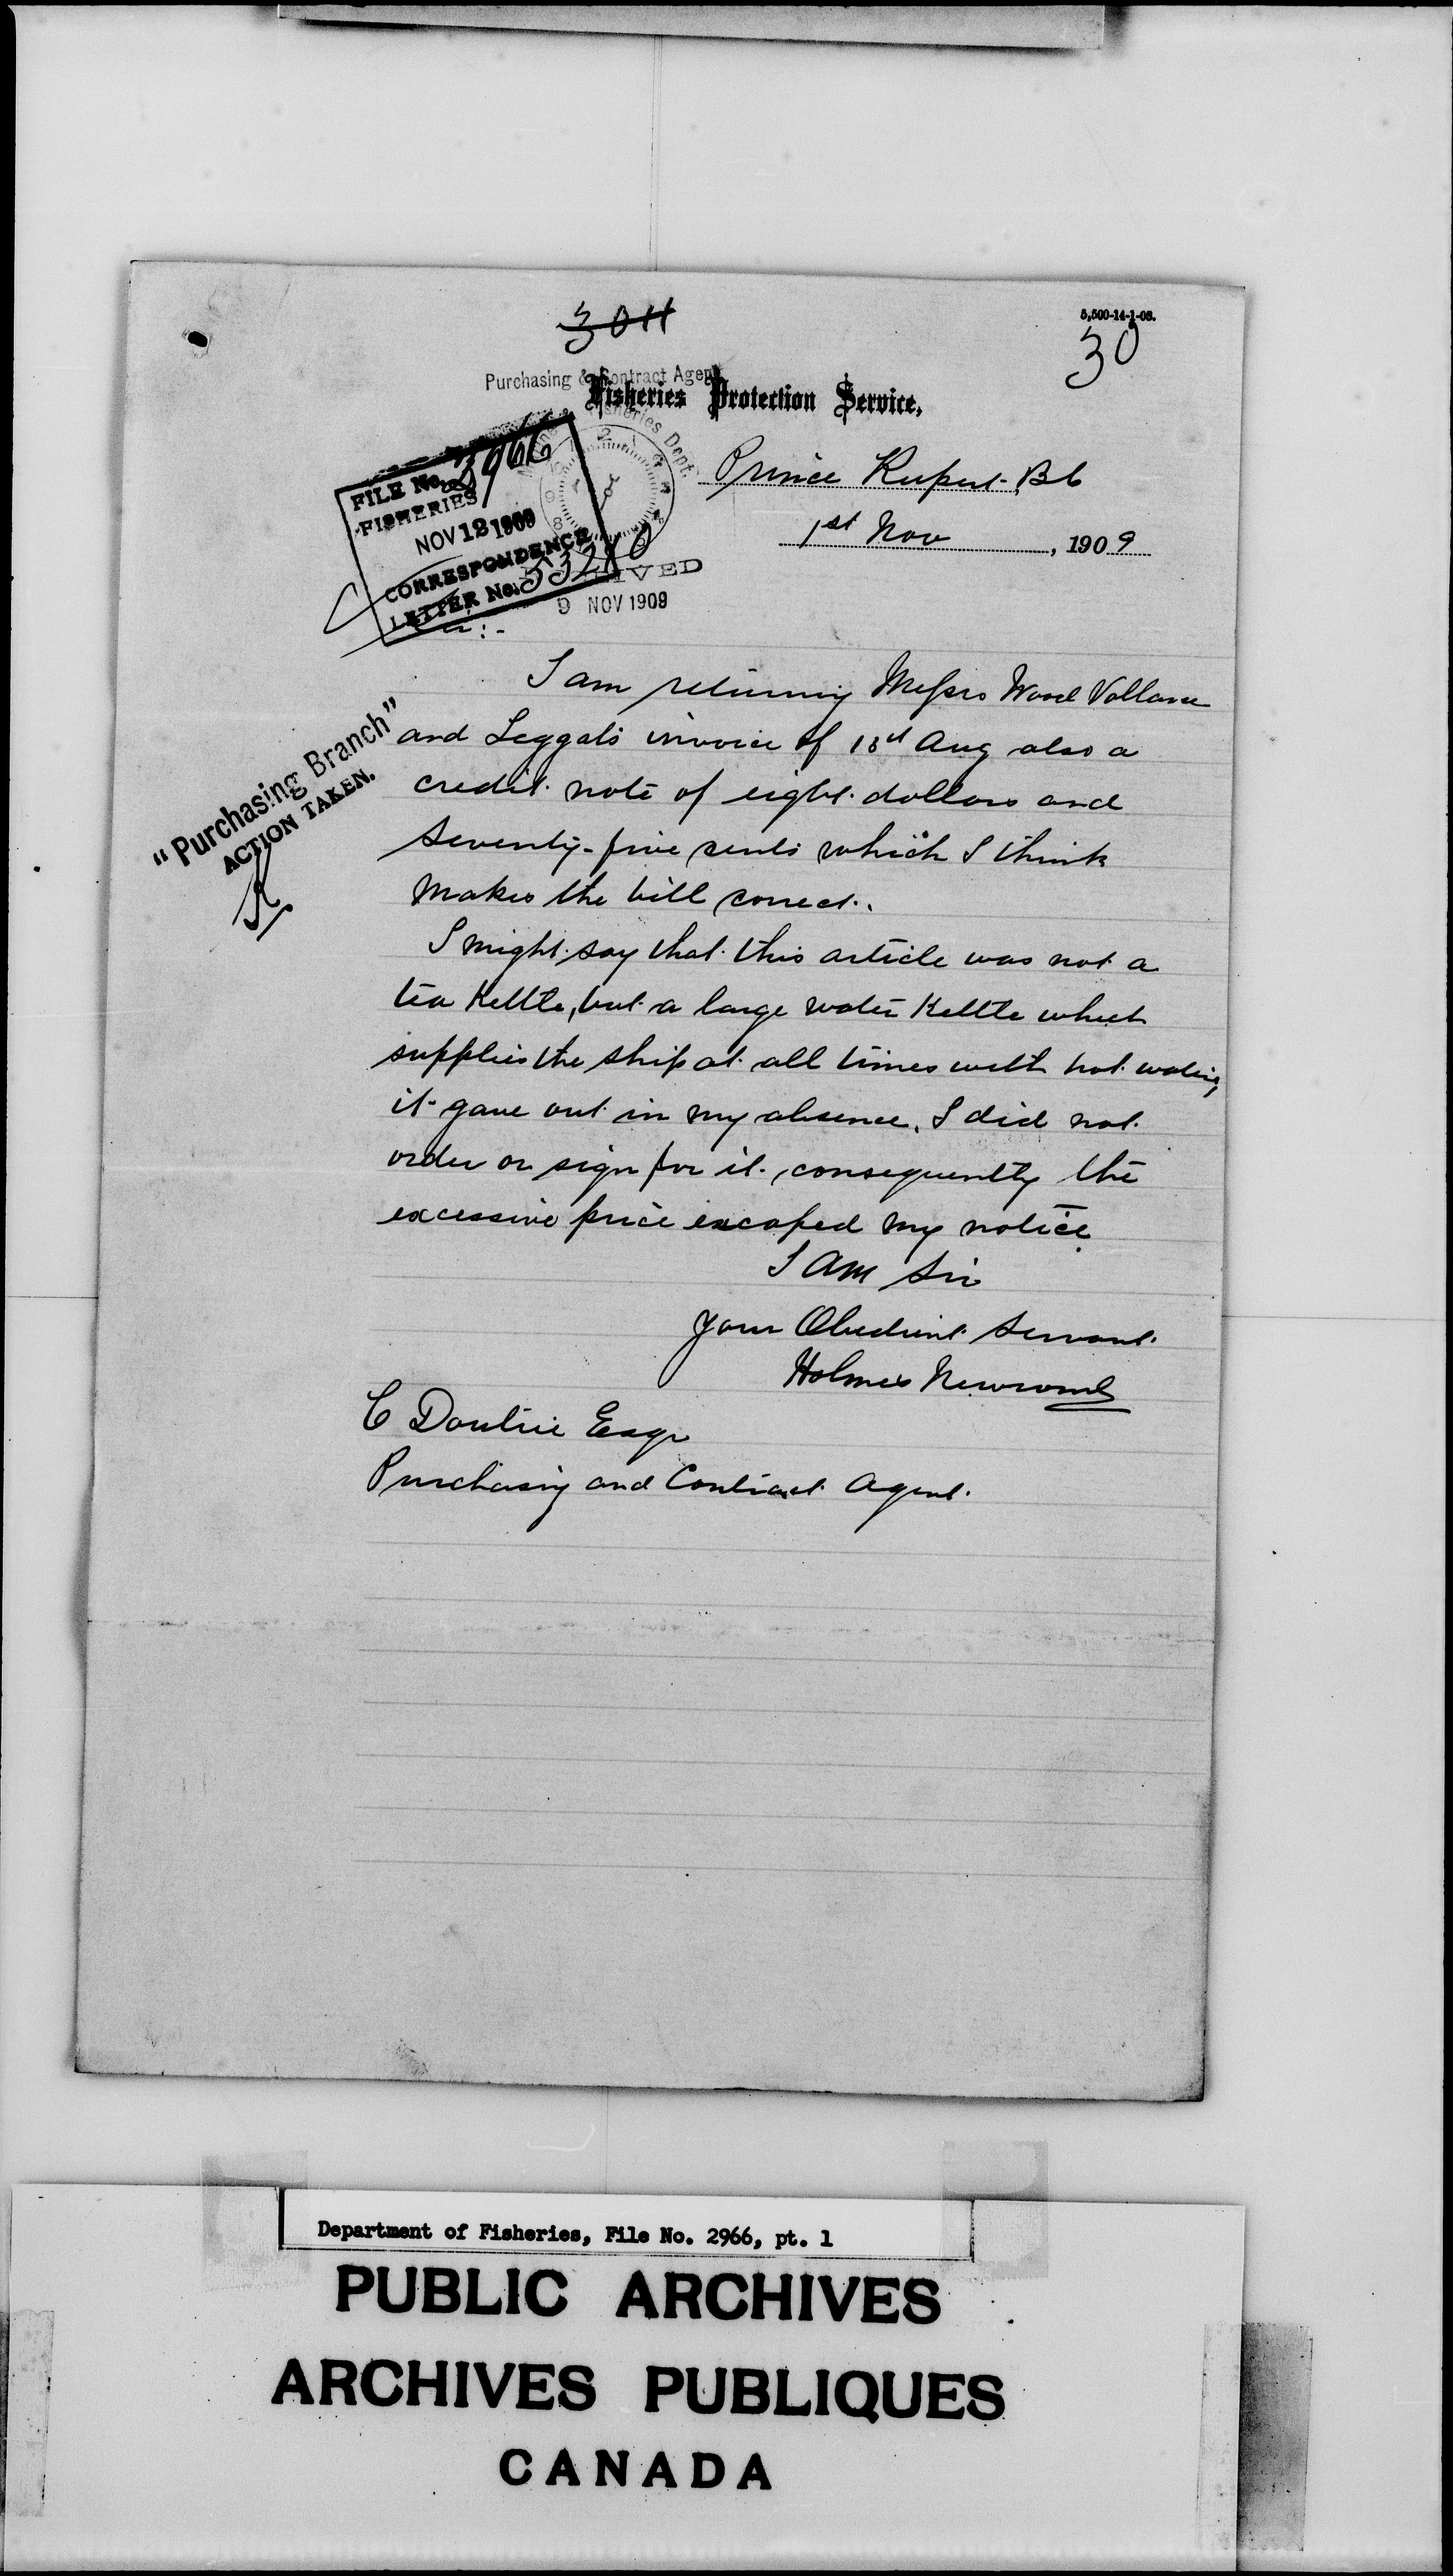 3011
5,500-14-1-08.
30
Purchasing & Contract Agent
Fisheries Protection Service,
Fisheries Dept.
FILE No. 2966
FISHERIES
NOV 12 1909
CORRESPONDENCE
LETTER No. 53280
RECEIVED
9 NOV 1909
Prince Rupert, BC
1st Nov, 1909
Sir:-
I am returning Messrs Wood Vallance
and Leggats invoice of 18th Aug also a
credit note of eight dollars and
seventy-five cents which I think
makes the bill correct.
"Purchasing Branch"
ACTION TAKEN.
I might say that this article was not a
tea Kettle, but a large water Kettle which
supplies the ship at all times with hot water,
it gave out in my absence, I did not
order or sign for it, consequently the
excessive price excaped my notice.
I am Sir
Your Obedient Servant.
Holmes Newcomb
C Doutrie Esqr
Purchasing and Contract Agent.
Department of Fisheries, File No. 2966, pt. 1
PUBLIC ARCHIVES
ARCHIVES PUBLIQUES
CANADA